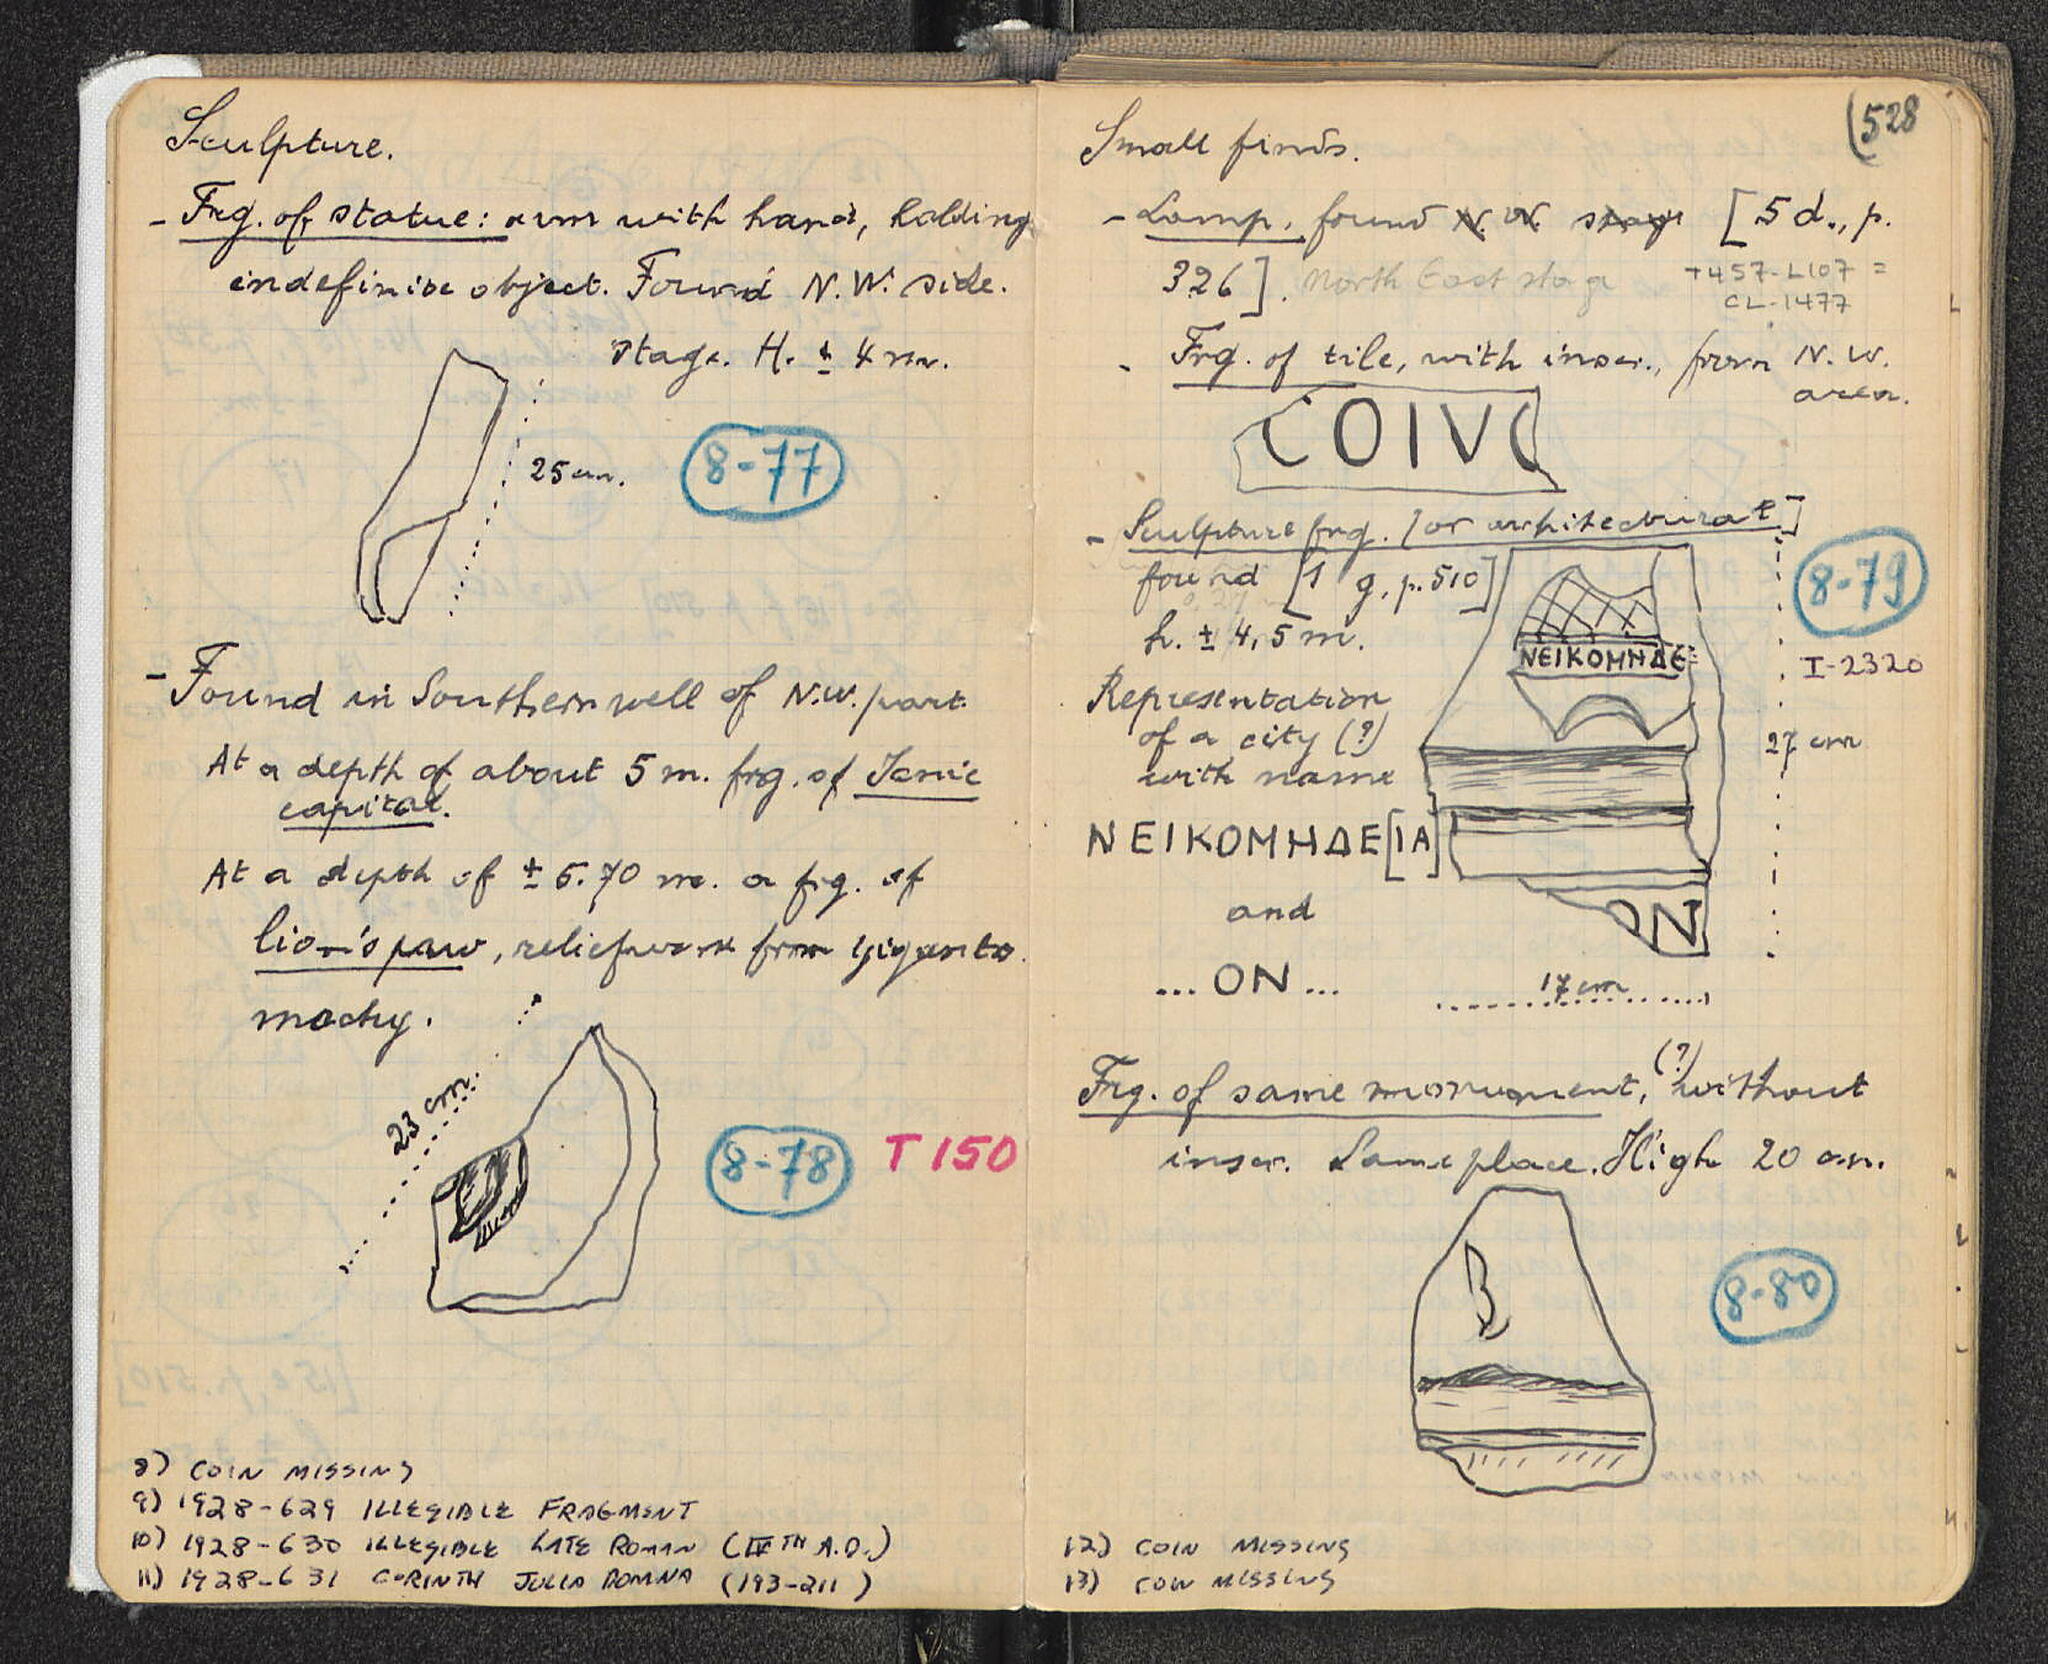 Sculpture.
- Frg. of statue: arm with hand, holding
indefinite object. Found N.W. side.
stage. H. ± 4 m.
25 cm.
8-77
- Found in Southern well of N.W. part.
At a depth of about 5 m. frg. of Ionic
capital.
At a depth of ± 6.70 m. a frg. of
lion's paw, reliefwork from giganto
machy.
23 cm.
8-78
T 150
8) COIN MISSING
9) 1928-629 ILLEGIBLE FRAGMENT
10) 1928-630 ILLEGIBLE LATE ROMAN (IVTH A.D.)
11) 1928-631 CORINTH JULIA DOMNA (193-211)
528
Small finds.
- Lamp, found N. W. stage [5 d., p.
326]. North East stage T457-L107 =
CL-1477
- Frg. of tile, with inscr., from N.W.
area.
COIVC
- Sculpture frg. [or architectural]
found [1 g, p. 510]
h. ± 4,5 m.
8-79
ΝΕΙΚΟΜΗΔΕ
I-2320
Representation
of a city (?)
with name
27 cm
ΝΕΙΚΟΜΗΔΕ[ΙΑ]
and
ON
... ON ...
17 cm
Frg. of same monument, (?) without
inscr. Same place. High 20 cm.
8-80
12) COIN MISSING
13) COIN MISSING